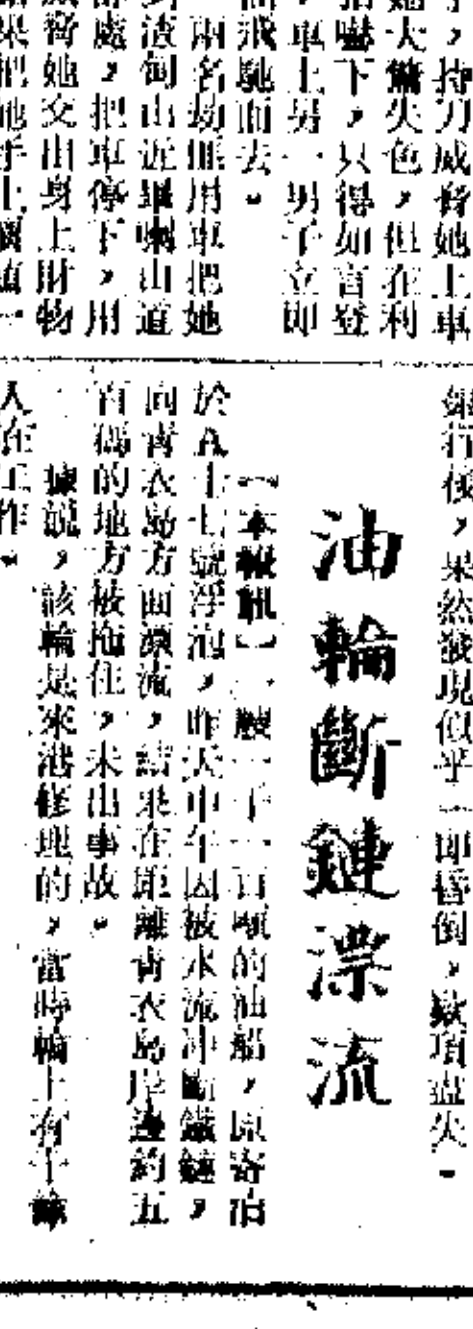 ，持刀威脅她上車
她大驚失色，但在利
嚇下，只得如言登
車上另一男子立即
飛馳而去。
兩名劫匪用車把她
渣甸山近畢喇山道
處，把車停下，用
脅她交出身上財物
銀行後，果然發現似乎一即昏倒，款項盡失。
油輪斷鏈漂流
【本報訊】一艘一千一百噸的油船，原寄泊
於A十七號浮泡，昨天中午因被水流冲斷鐵鏈，
向青衣島方面漂流，結果在距離青衣島岸邊約五
百碼的地方被拖住，未出事故。
據說，該輪是來港修理的，當時輪上有十餘
人在工作。